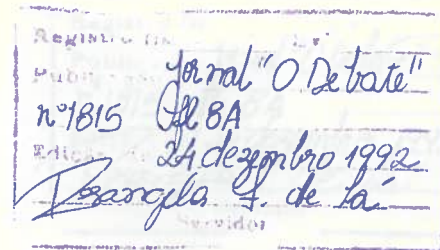 Registro
Jornal "O Debate"
nº 1815 fl 8A
24 dezembro 1992
Rosangela F. de Sá
Servidor